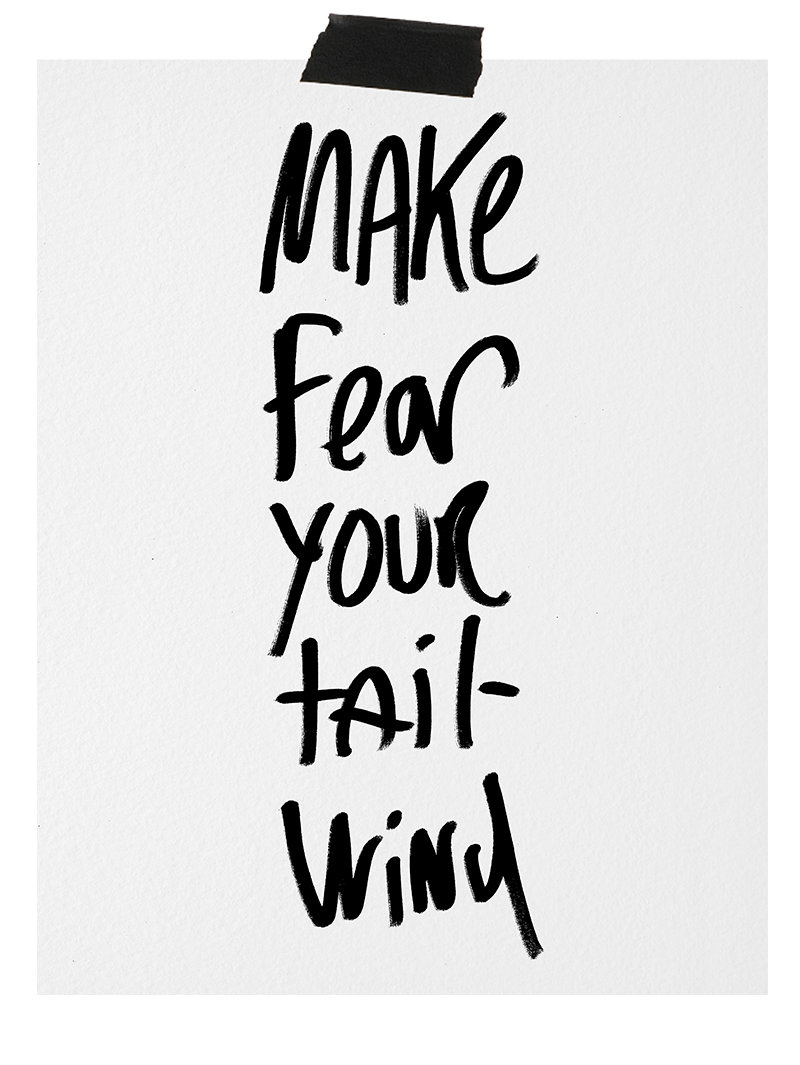 MAKe
Fear
YOUR
tAil-
WiNd